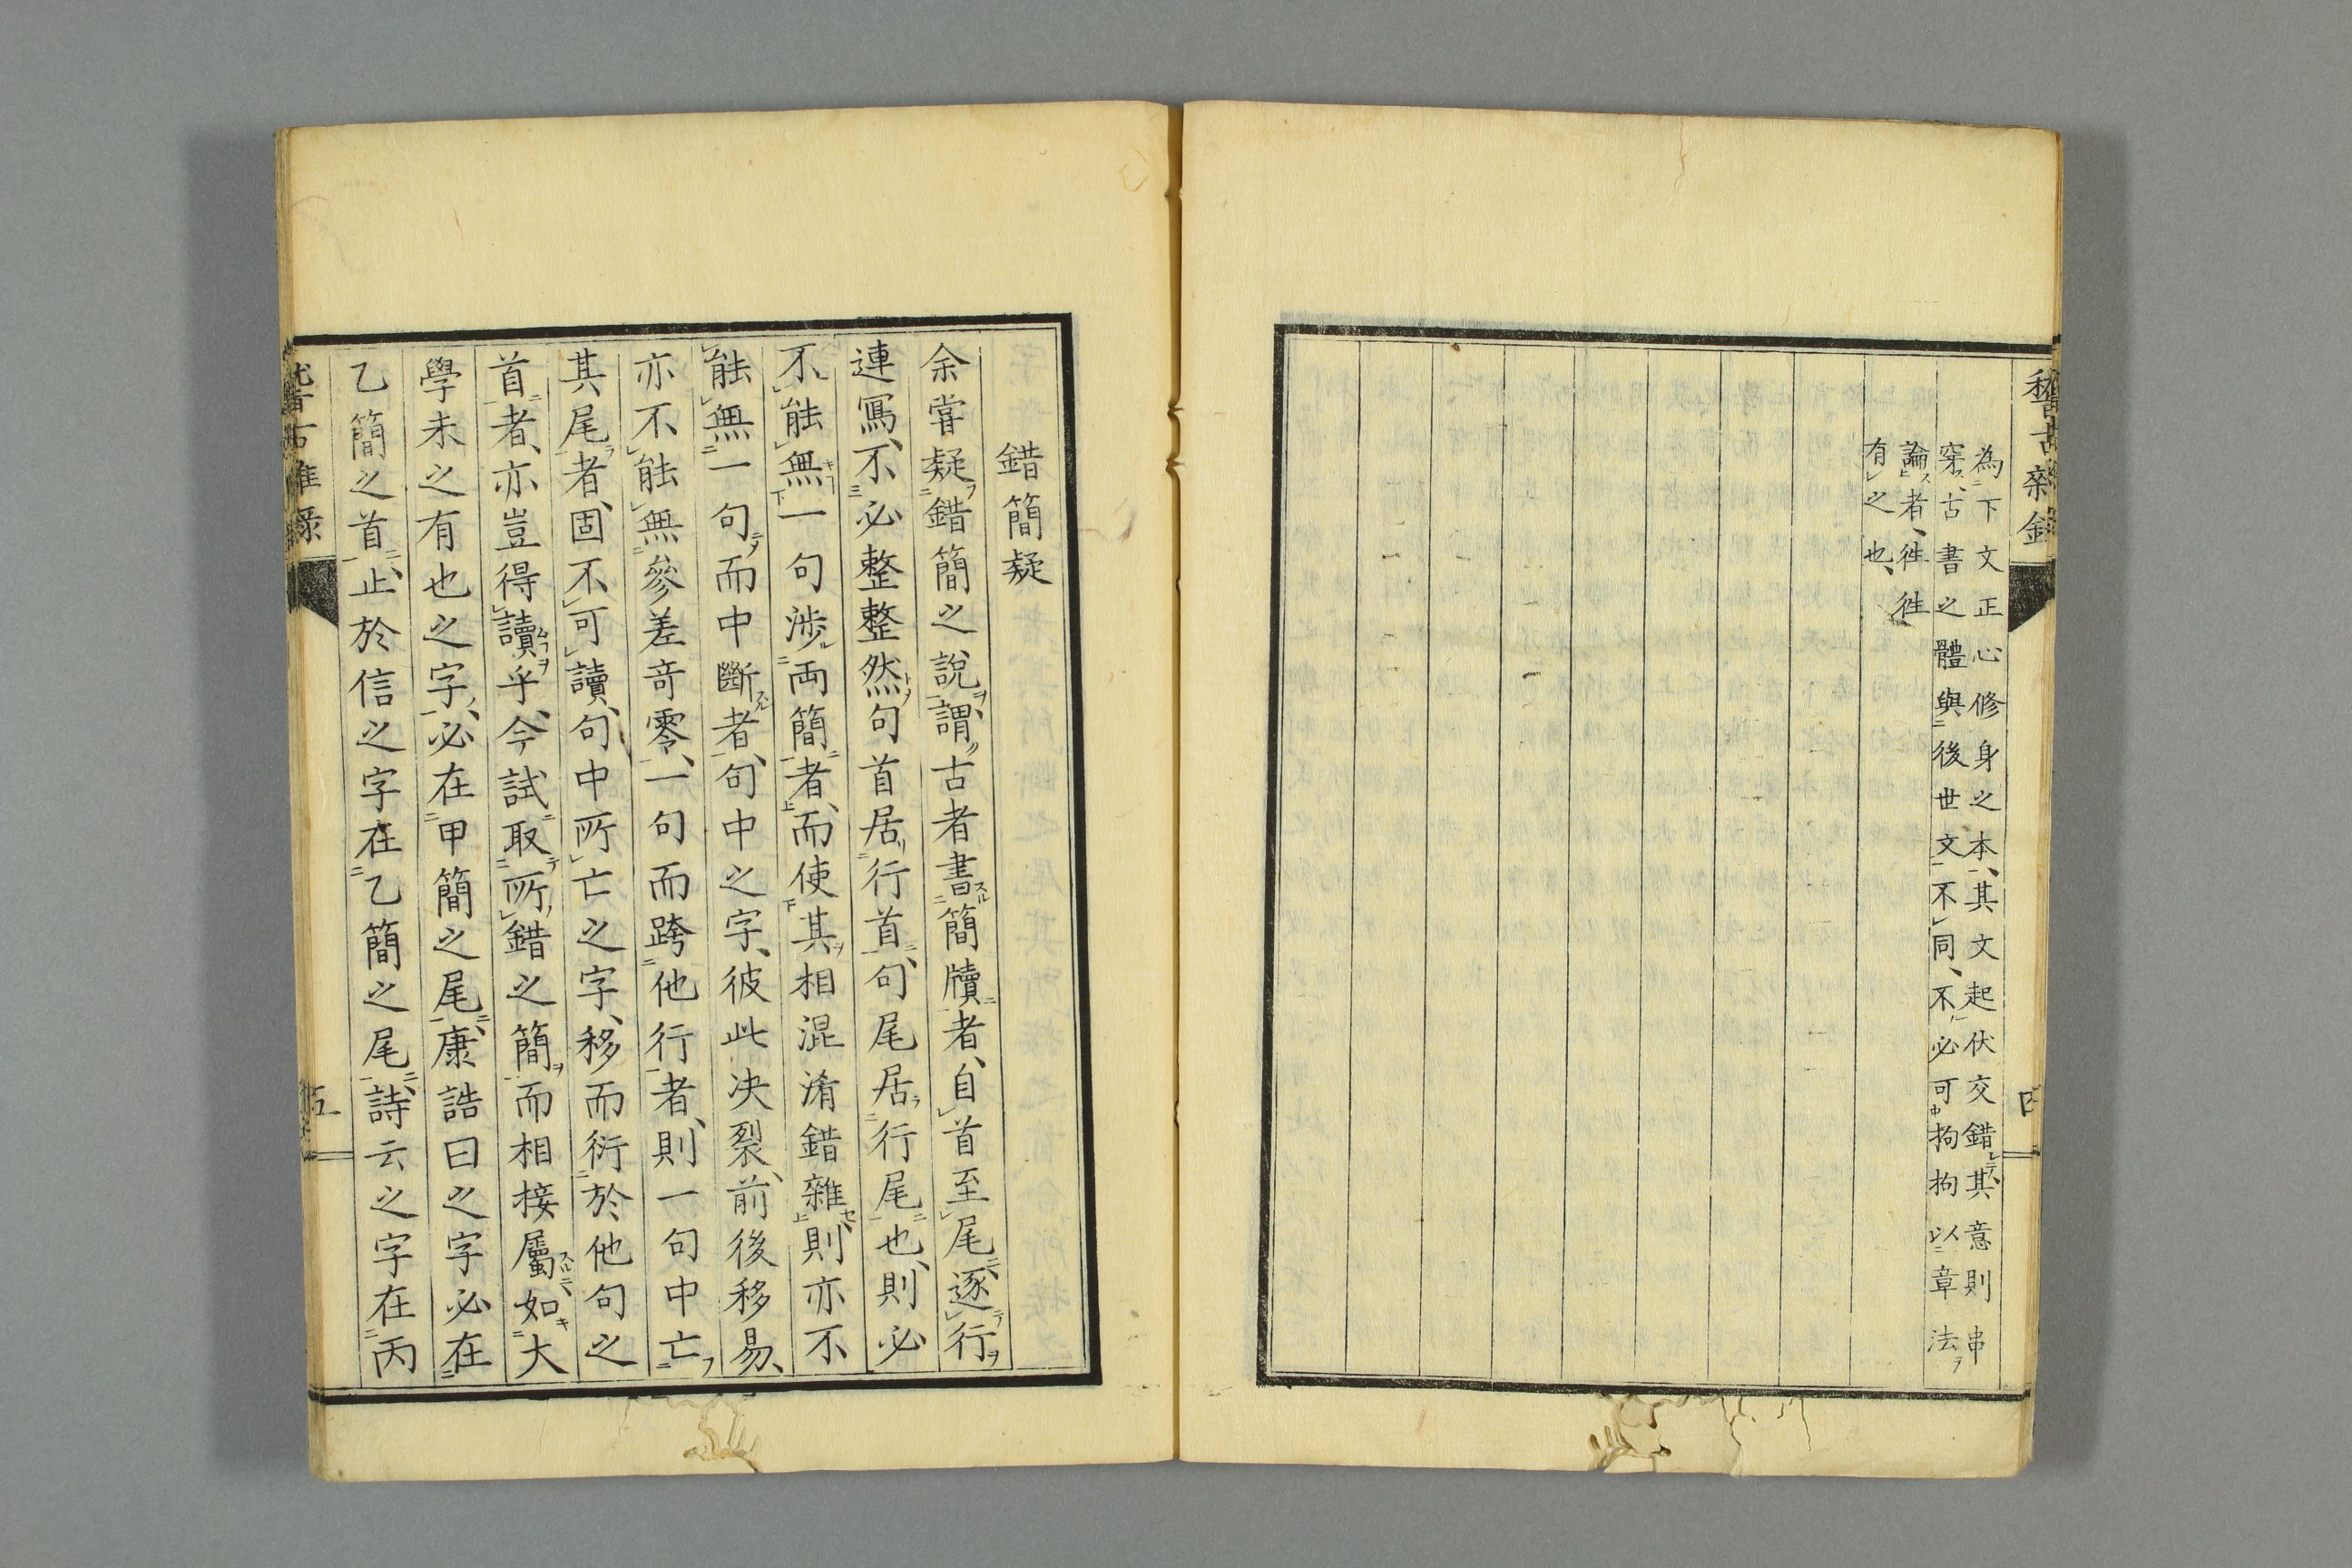 稽古雜録
四
為下文正心修身之本、其文起伏交錯、其意則串
穿、古書之體與後世文不同、不必可拘拘以章法
論者、徃徃
有之也、
錯簡疑
余甞疑錯簡之説、謂古者書簡牘者、自首至尾、逐行
連寫、不必整整然句首居行首、句尾居行尾也、則必
不能無一句渉両簡者、而使其相混淆錯雜、則亦不
能無一句而中斷者、句中之字、彼此决裂、前後移易、
亦不能無參差竒零、一句而跨他行者、則一句中亡
其尾者、固不可讀、句中所亡之字、移而衍於他句之
首者、亦豈得讀乎、今試取所錯之簡而相接屬、如大
學未之有也之字、必在甲簡之尾、康誥曰之字必在
乙簡之首、止於信之字在乙簡之尾、詩云之字在丙
稽古雜録
五